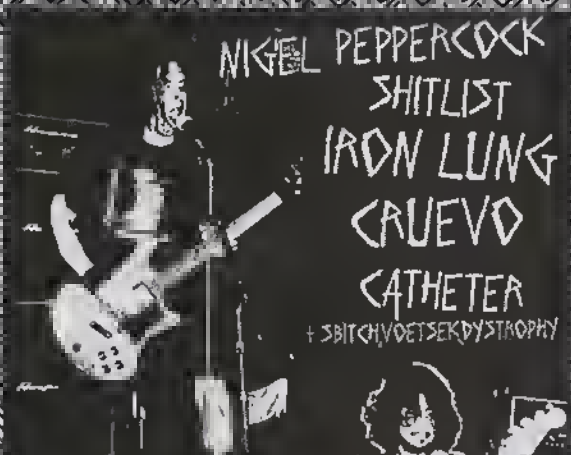 NIGEL PEPPERCOCK
SHITLIST
IRON LUNG
CRUEVO
CATHETER
+ SBITCH, VOETSEK, DYSTROPHY